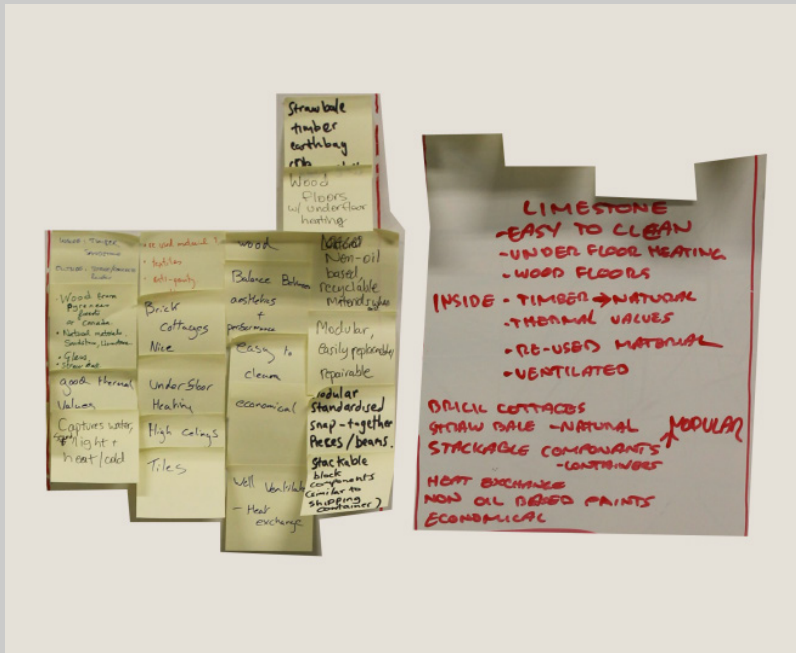 Strawbale
timber
earthbag
Wood
floors
w/ underfloor
heating
INSIDE: TIMBER
• Wood from
forests
or Canada.
• Natural materials,
Sandstone, Limestone.
• Glass.
• Straw bale
good thermal
values
Captures water,
light +
heat/cold
re used material
• textiles
Brick
cottages
Nice
Underfloor
Heating
High Celings
Tiles
wood
Balance Between
aesthetics
+
performance
easy to
clean
economical
Well Ventilate
- Heat
exchange
Natural
Non-oil
based,
recyclable
Materials
Modular,
easily replaceable,
repairable
modular
standardised
snap-together
Pieces/beams.
Stackable
block
components
(similar to
shipping
container)
LIMESTONE
-EASY TO CLEAN
-UNDER FLOOR HEATING
-WOOD FLOORS
INSIDE - TIMBER → NATURAL
-THERMAL VALUES
-RE-USED MATERIAL
-VENTILATED
BRICK COTTAGES
STRAW BALE -NATURAL
STACKABLE COMPONANTS MODULAR
-CONTAINERS
HEAT EXCHANGE
NON OIL BASED PAINTS
ECONOMICAL